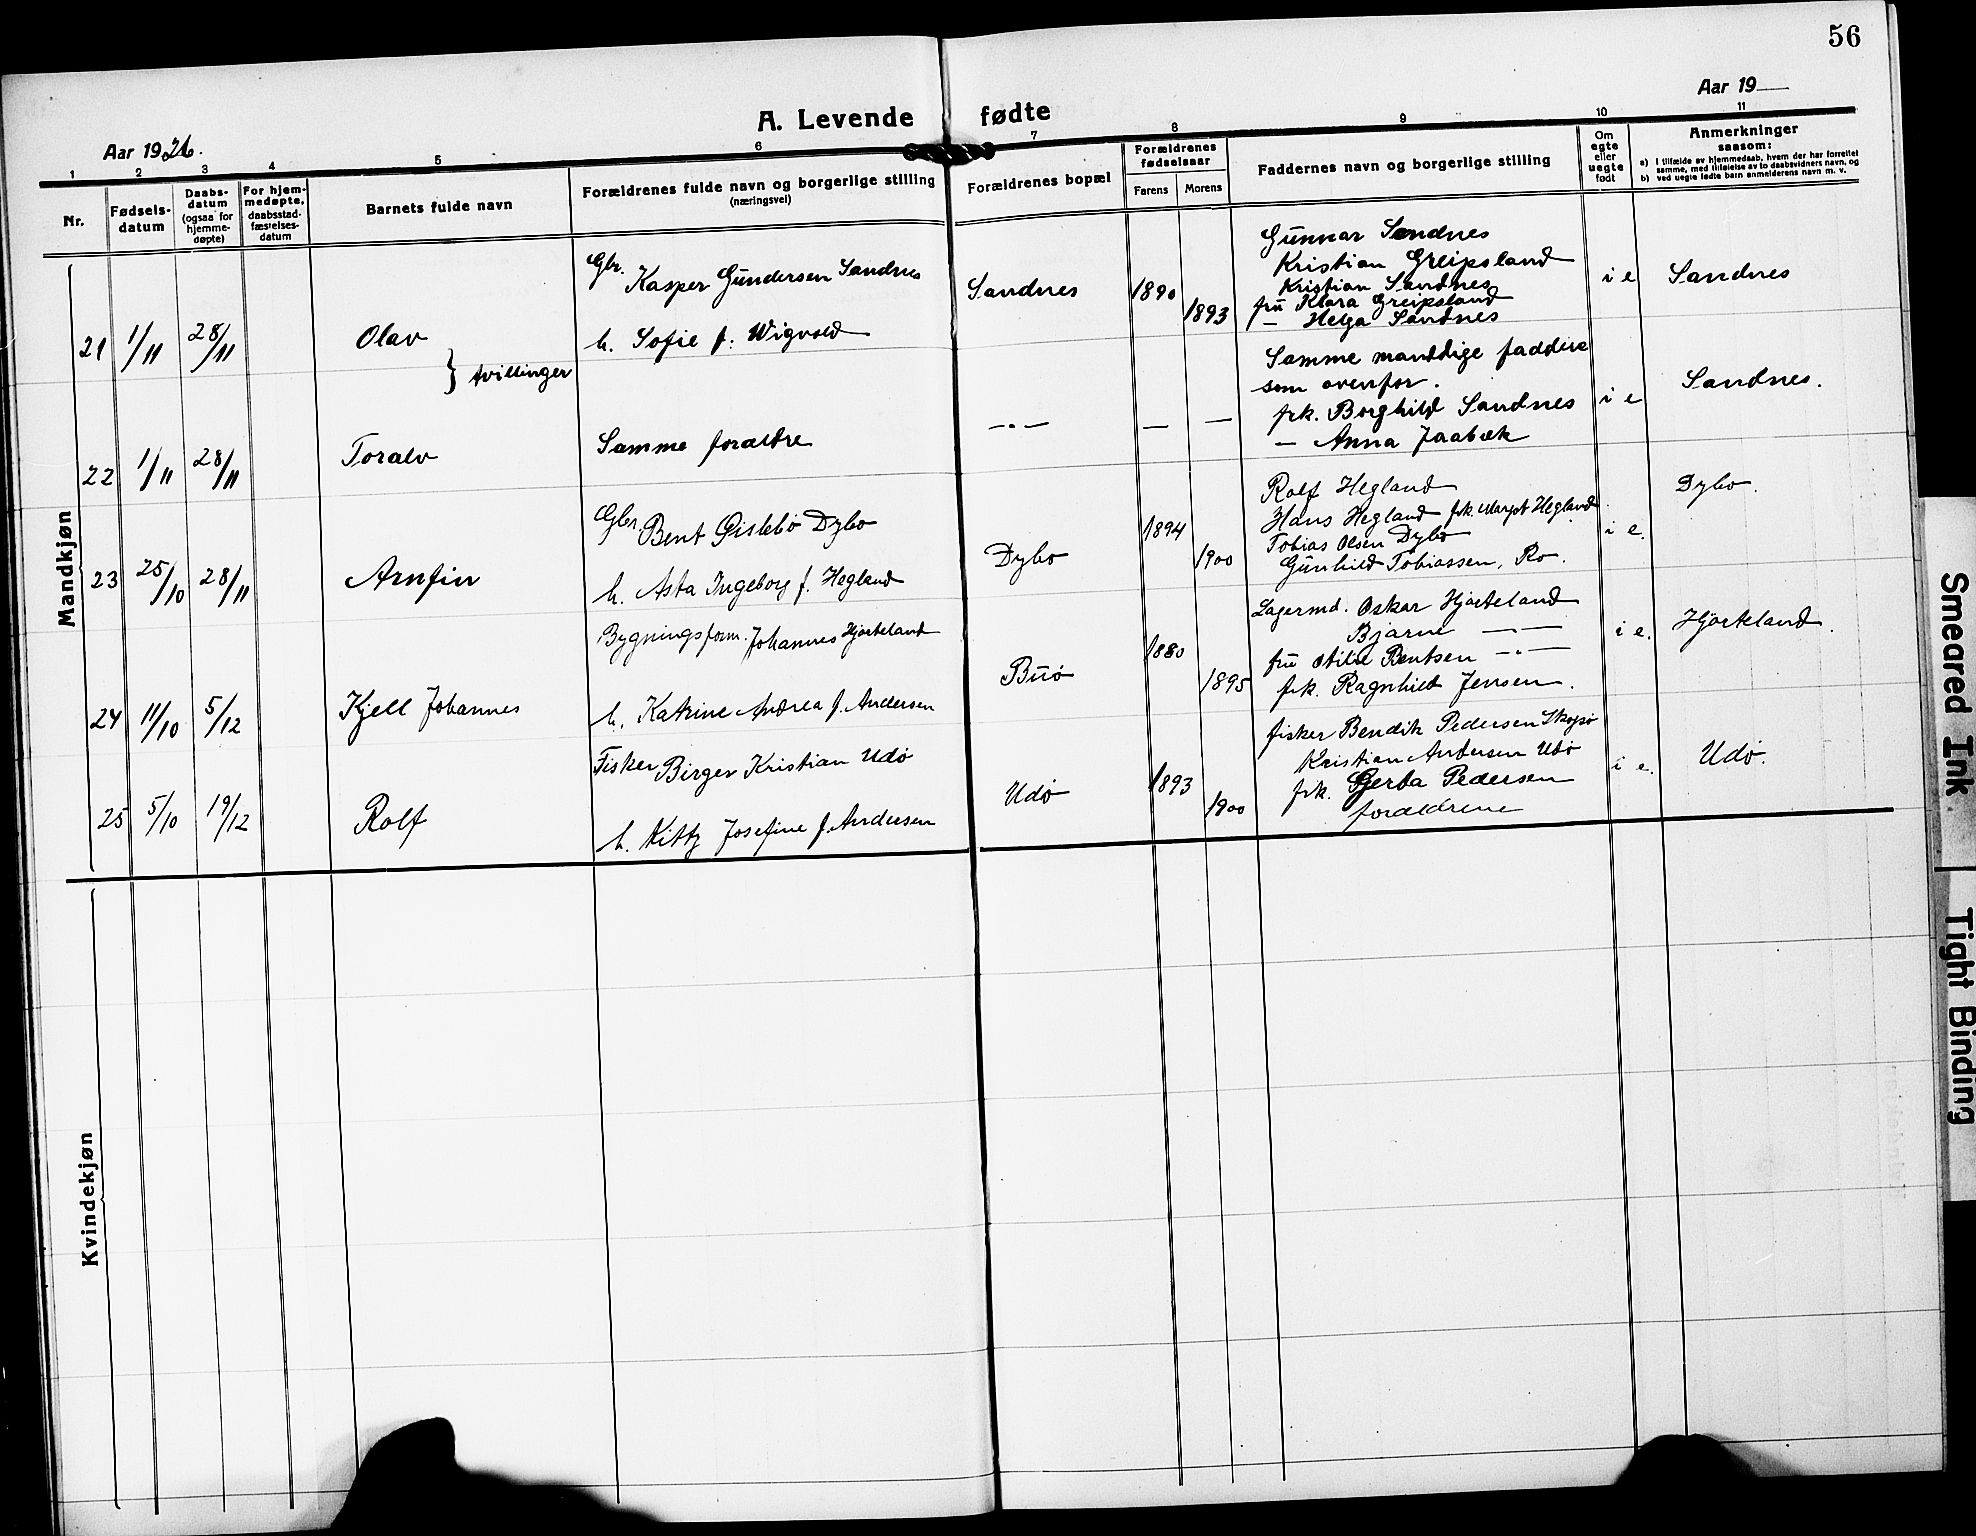 56
Aar 1926.
A. Levende fødte
Aar 19
1 2 3 4 5 6 7 8 9 10 11
Nr.
Fødsels-
datum
Daabs-
datum
(ogsaa for
hjemme-
døpte)
For hjem-
medøpte,
daabsstad-
fæstelses-
datum
Barnets fulde navn
Forældrenes fulde navn og borgerlige stilling
(næringsvei)
Forældrenes bopæl
Forældrenes
fødselsaar
Farens Morens
Faddernes navn og borgerlige stilling
Om
egte
eller
uegte
født
Anmerkninger
saasom:
a) i tilfælde av hjemmedaab, hvem der har forrettet
samme, med tilføielse av to daabsvidners navn, og
b) ved uegte fødte barn anmelderens navn m. v.
Mandkjøn
21 1/11 28/11 Olav
} tvillinger
Gbr. Kasper Gundersen Sandnes
h. Sofie f. Wigvold
Sandnes 1890 1893
Gunnar Sandnes
Kristian Greipsland
Kristian Sandnes
fru Klara Greipsland
— Helga Sandnes
i e Sandnes
22 1/11 28/11 Toralv
Samme forældre
—"— — —
Samme mandlige faddere
som ovenfor.
frk. Borghild Sandnes
— Anna Jaabæk
i e Sandnes.
23 25/10 28/11 Arnfin
Gbr. Bent Øislebø Dybo
h. Asta Ingeborg f. Hegland
Dybo 1894 1900
Rolf Hegland
Hans Hegland frk. Margot Hegland
Tobias Olsen Dybo
Gunhild Tobiassen, Ro.
i e. Dybo.
24 11/10 5/12 Kjell Johannes
Bygningsform. Johannes Hjorteland
h. Katrine Andrea f. Andersen
Buø 1880 1895
Lagermd. Oskar Hjorteland
Bjarne —"—
fru Bentsen —"—
frk. Ragnhild Jensen.
i e. Hjorteland.
25 5/10 19/12 Rolf
Fisker Birger Kristian Udø
h. Kitty Josefine f. Andersen
Udø 1893 1900
fisker Bendik Pedersen Skogsø
Kristian Andersen Udø
frk. Gerda Pedersen
forældrene
i e. Udø.
Kvindekjøn
Smeared Ink
Tight Binding